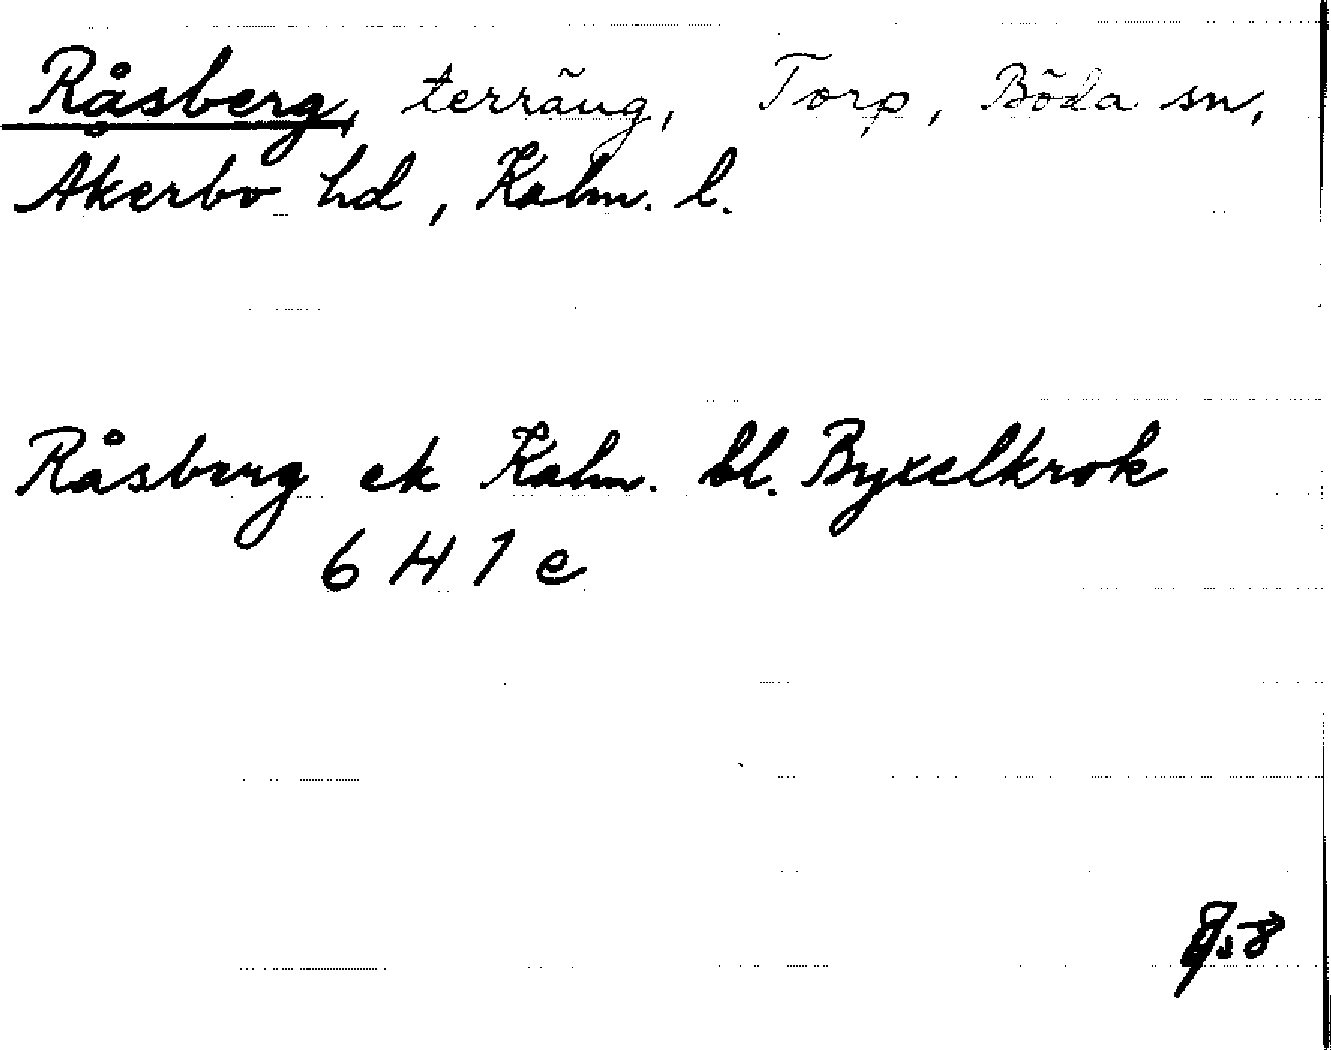 Råsberg, terräng, Torp, Böda sn,
Åkerbo hd, Kalm. l.
Råsberg ek Kalm. bl. Byxelkrok
6 H 1 e